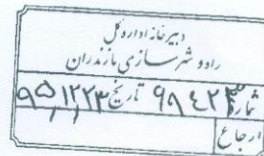 دبیرخانه اداره کل
راه و شهرسازی مازندران
شماره ۹۸۴۲۳ تاریخ ۹۵/۱۲/۲۳
ارجاع